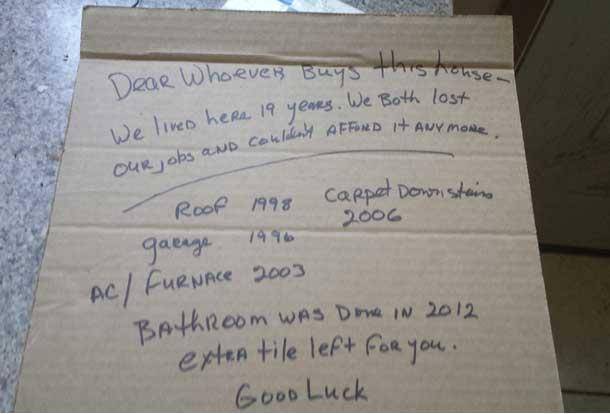 Dear Whoever Buys this house-
We lived here 19 years. We Both lost
our jobs and couldn't AFFORD it ANYMORE.
Roof 1998 Carpet Downstairs
2006
garage 1996
AC/FURNACE 2003
BAthROOM WAS Done IN 2012
extra tile left for you.
Good Luck